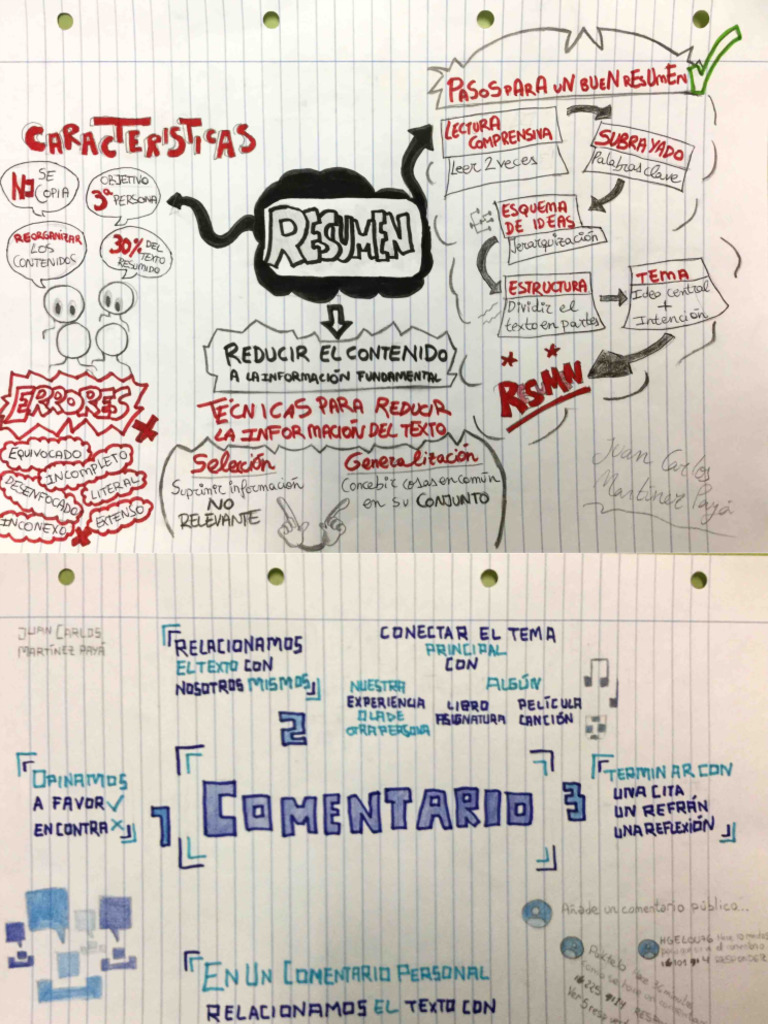 PASOS PARA UN BUEN RESUMEN
CARACTERISTICAS
NO SE
COPIA
OBJETIVO
3ª PERSONA
REORGANIZAR
LOS
CONTENIDOS
30% DEL
TEXTO
RESUMIDO
RESUMEN
LECTURA
COMPRENSIVA
Leer 2 veces
SUBRAYADO
Palabras clave
ESQUEMA
DE IDEAS
Jerarquización
ESTRUCTURA
Dividir el
texto en partes
TEMA
Idea central
+
Intención
RSMN
REDUCIR EL CONTENIDO
A LA INFORMACIÓN FUNDAMENTAL
TÉCNICAS PARA REDUCIR
LA INFORMACIÓN DEL TEXTO
Selección
Suprimir información
NO
RELEVANTE
Generalización
Concebir cosas en común
en su CONJUNTO
ERRORES
EQUIVOCADO
INCOMPLETO
DESENFOCADO
LITERAL
INCONEXO
EXTENSO
Juan Carlos
Martínez Payá
JUAN CARLOS
MARTÍNEZ PAYÁ
RELACIONAMOS
EL TEXTO CON
NOSOTROS MISMOS
2
CONECTAR EL TEMA
PRINCIPAL
CON
NUESTRA
EXPERIENCIA
O LA DE
OTRA PERSONA
ALGÚN
LIBRO
ASIGNATURA
PELÍCULA
CANCIÓN
OPINAMOS
A FAVOR ✓
EN CONTRA X
1
COMENTARIO
3
TERMINAR CON
UNA CITA
UN REFRÁN
UNA REFLEXIÓN
Añade un comentario público...
EN UN COMENTARIO PERSONAL
RELACIONAMOS EL TEXTO CON